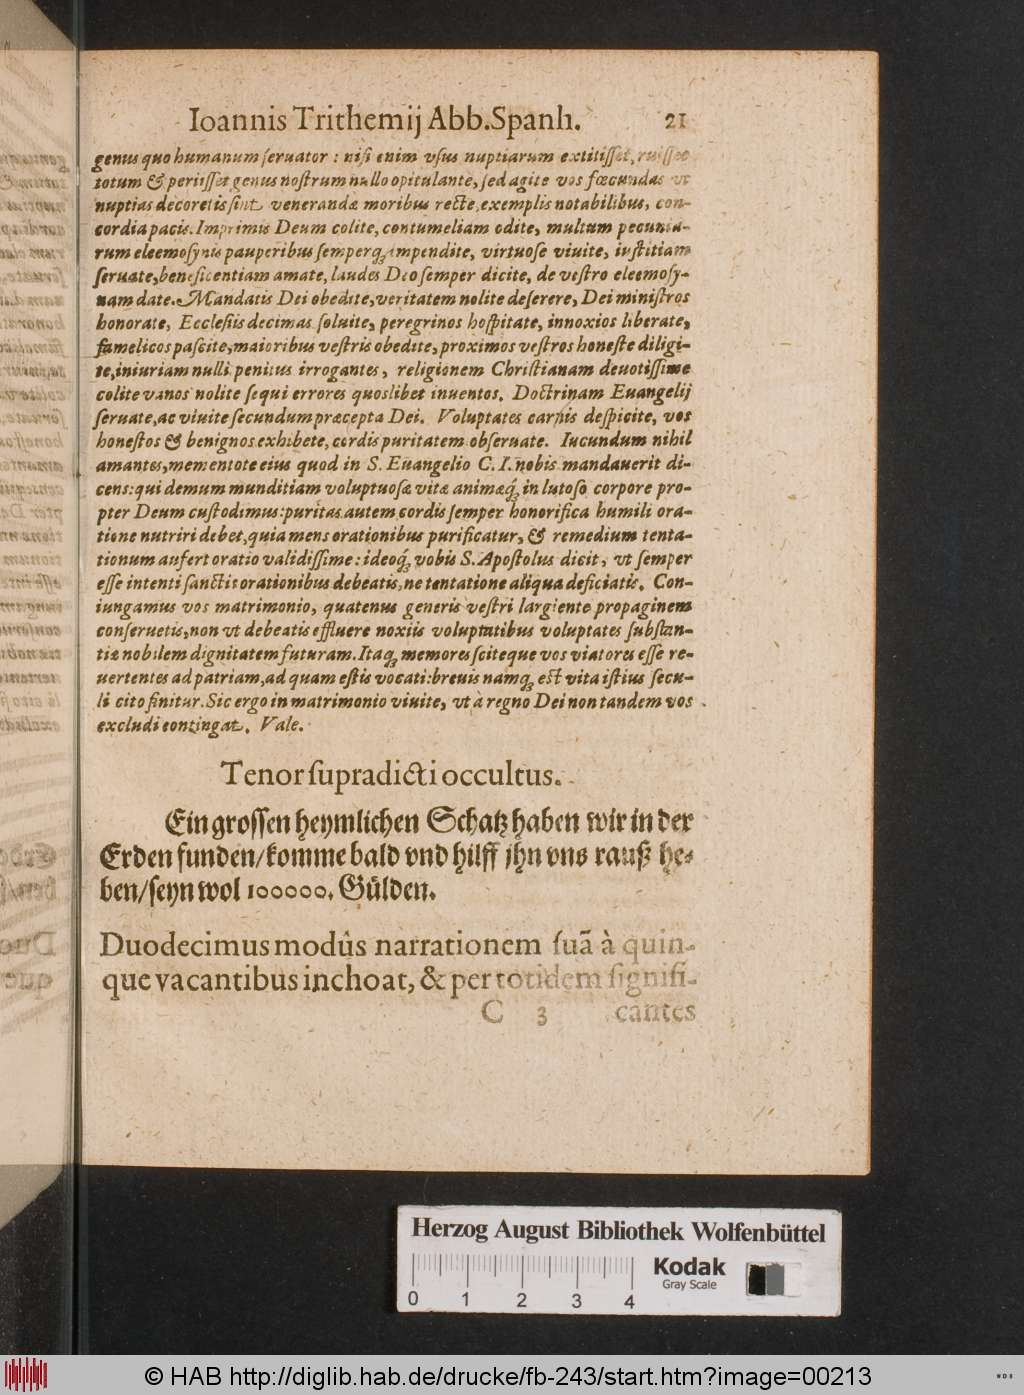 Ioannis Trithemij Abb. Spanh. 21
genus quo humanum ſeruator : niſi enim vſus nuptiarum extitiſſet, ruiſſet
totum & periiſſet genus noſtrum nullo opitulante, ſed agite vos fœcundas vt
nuptias decoretis ſint venerandæ moribus recte, exemplis notabilibus, con-
cordia pacis. Imprimis Deum colite, contumeliam odite, multum pecunia-
rum eleemoſynis pauperibus ſemperq́; impendite, virtuoſe viuite, iuſtitiam
ſeruate, beneficentiam amate, laudes Deo ſemper dicite, de veſtro eleemoſy-
nam date. Mandatis Dei obedite, veritatem nolite deſerere, Dei miniſtros
honorate, Eccleſiis decimas ſoluite, peregrinos hoſpitate, innoxios liberate,
famelicos paſcite, maioribus veſtris obedite, proximos veſtros honeſte diligi-
te, iniuriam nulli penitus irrogantes, religionem Chriſtianam deuotiſſime
colite vanos nolite ſequi errores quoslibet inuentos. Doctrinam Euangelij
ſeruate, ac viuite ſecundum præcepta Dei. Voluptates carnis deſpicite, vos
honeſtos & benignos exhibete, cordis puritatem obſeruate. Iucundum nihil
amantes, mementote eius quod in S. Euangelio C. I. nobis mandauerit di-
cens: qui demum munditiam voluptuoſæ vitæ animæq́; in lutoſo corpore pro-
pter Deum cuſtodimus: puritas autem cordis ſemper honorifica humili ora-
tione nutriri debet, quia mens orationibus purificatur, & remedium tenta-
tionum aufert oratio validiſſime: ideoq́; vobis S. Apoſtolus dicit, vt ſemper
eſſe intenti ſanctis orationibus debeatis, ne tentatione aliqua deficiatis. Con-
iungamus vos matrimonio, quatenus generis veſtri largiente propaginem
conſeruetis, non vt debeatis effluere noxiis voluptatibus voluptates ſubſtan-
tiæ nobilem dignitatem futuram. Itaq́; memores ſciteque vos viatores eſſe re-
uertentes ad patriam, ad quam eſtis vocati: breuis namq́; eſt vita iſtius ſecu-
li cito finitur. Sic ergo in matrimonio viuite, vt à regno Dei non tandem vos
excludi contingat. Vale.
Tenor ſupradicti occultus.
Ein groſſen heymlichen Schatz haben wir in der
Erden funden/ komme bald vnd hilff jhn vns rauß he-
ben/ ſeyn wol 100000. Gülden.
Duodecimus modûs narrationem ſuã à quin-
que vacantibus inchoat, & per totidem ſignifi-
C 3 cantes
Herzog August Bibliothek Wolfenbüttel
Kodak
Gray Scale
0 1 2 3 4
© HAB http://diglib.hab.de/drucke/fb-243/start.htm?image=00213